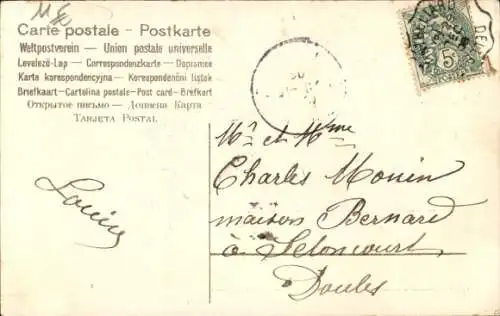 Carte postale - Postkarte
Weltpostverein - Union postale universelle
Levelező-Lap - Correspondenzkarte - Dopisnice
Karta korespondencyjna - Korespondenční lístek
Briefkaart - Cartolina postale - Post card - Brefkort
Открытое письмо - Дописна Карта
Tarjeta Postal
5
Mr et Mme
Charles Monin
maison Bernard
à Seloncourt
Doubs
Louise